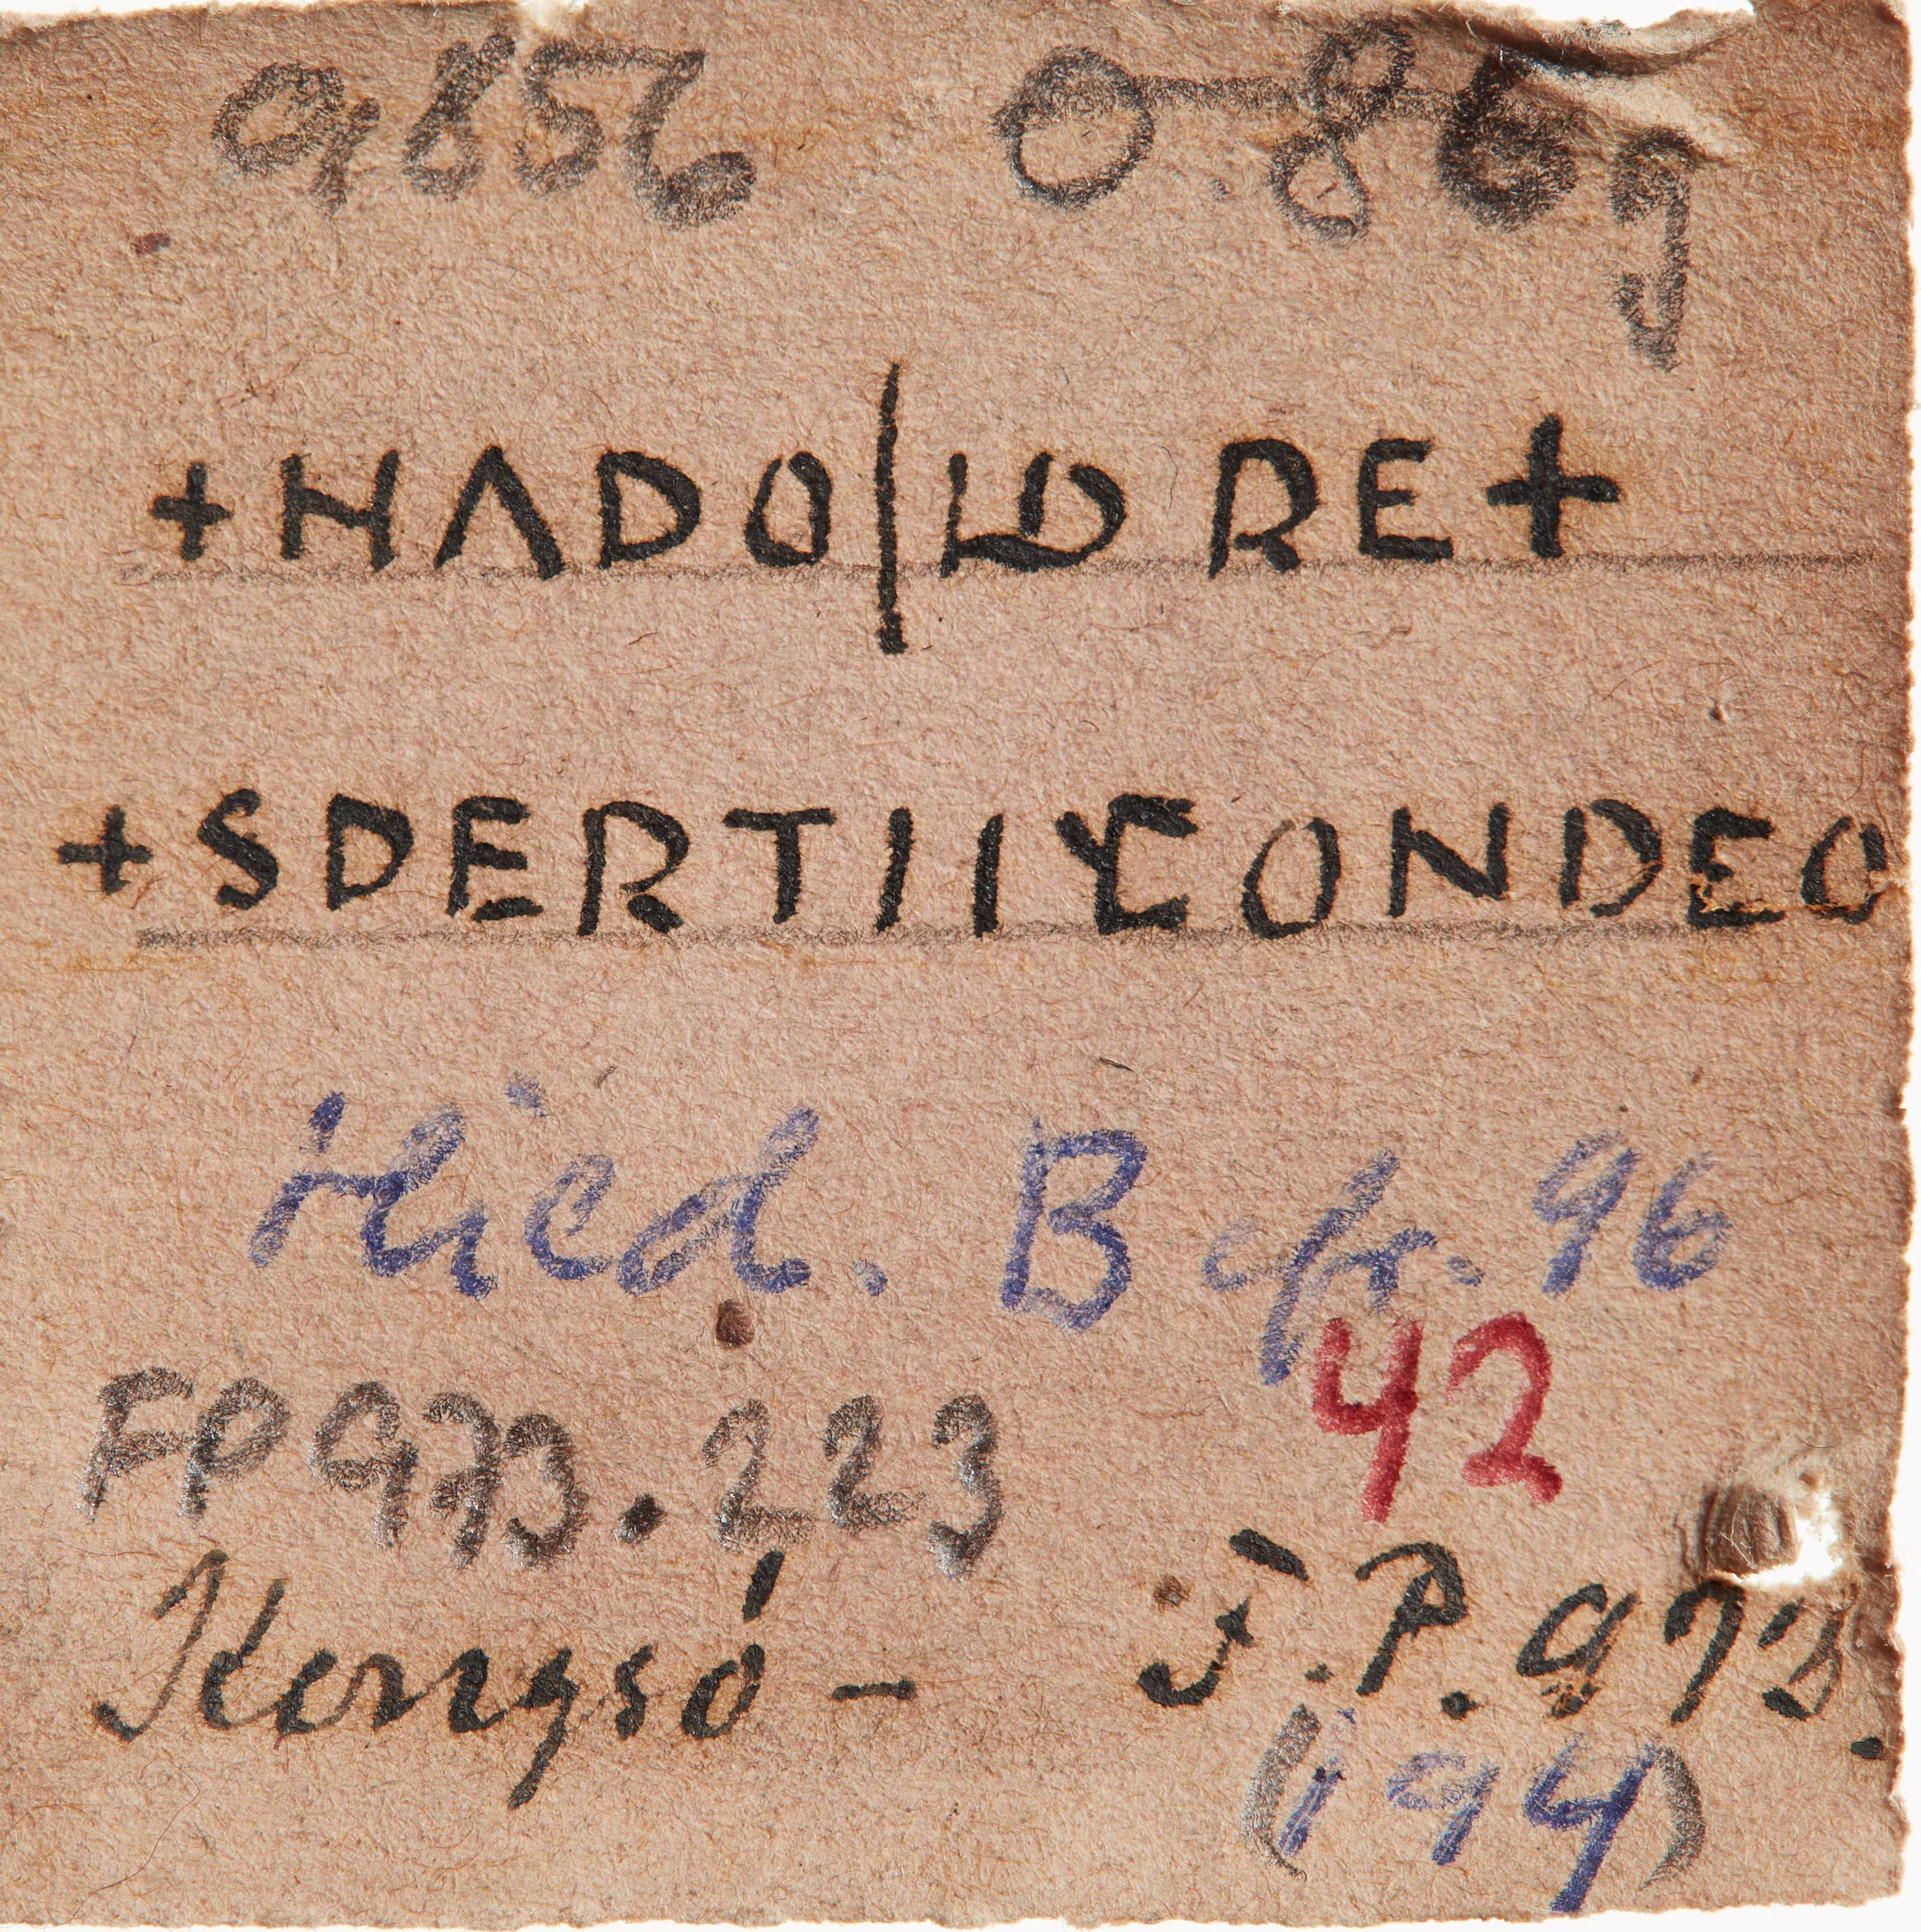 9856 0.86g
+HADO|LD RE+
+SDERTIIYCONDEO
Hild. B cfr. 96
42
FP 973.223
Kongsö – F.P. 973.
(194)